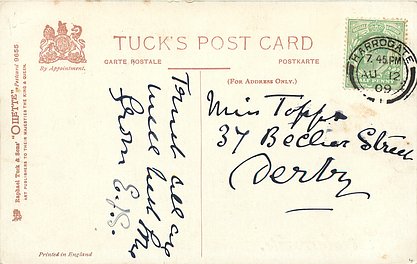 TUCK'S POST CARD
CARTE POSTALE
POSTKARTE
By Appointment.
(FOR ADDRESS ONLY.)
Raphael Tuck & Sons' "OILETTE" Postcard 9655
ART PUBLISHERS TO THEIR MAJESTIES THE KING & QUEEN.
HARROGATE
7.45 PM
AU 12
09
well
From E.J.S.
Miss Topps
37 Becher Street
Derby
Printed in England